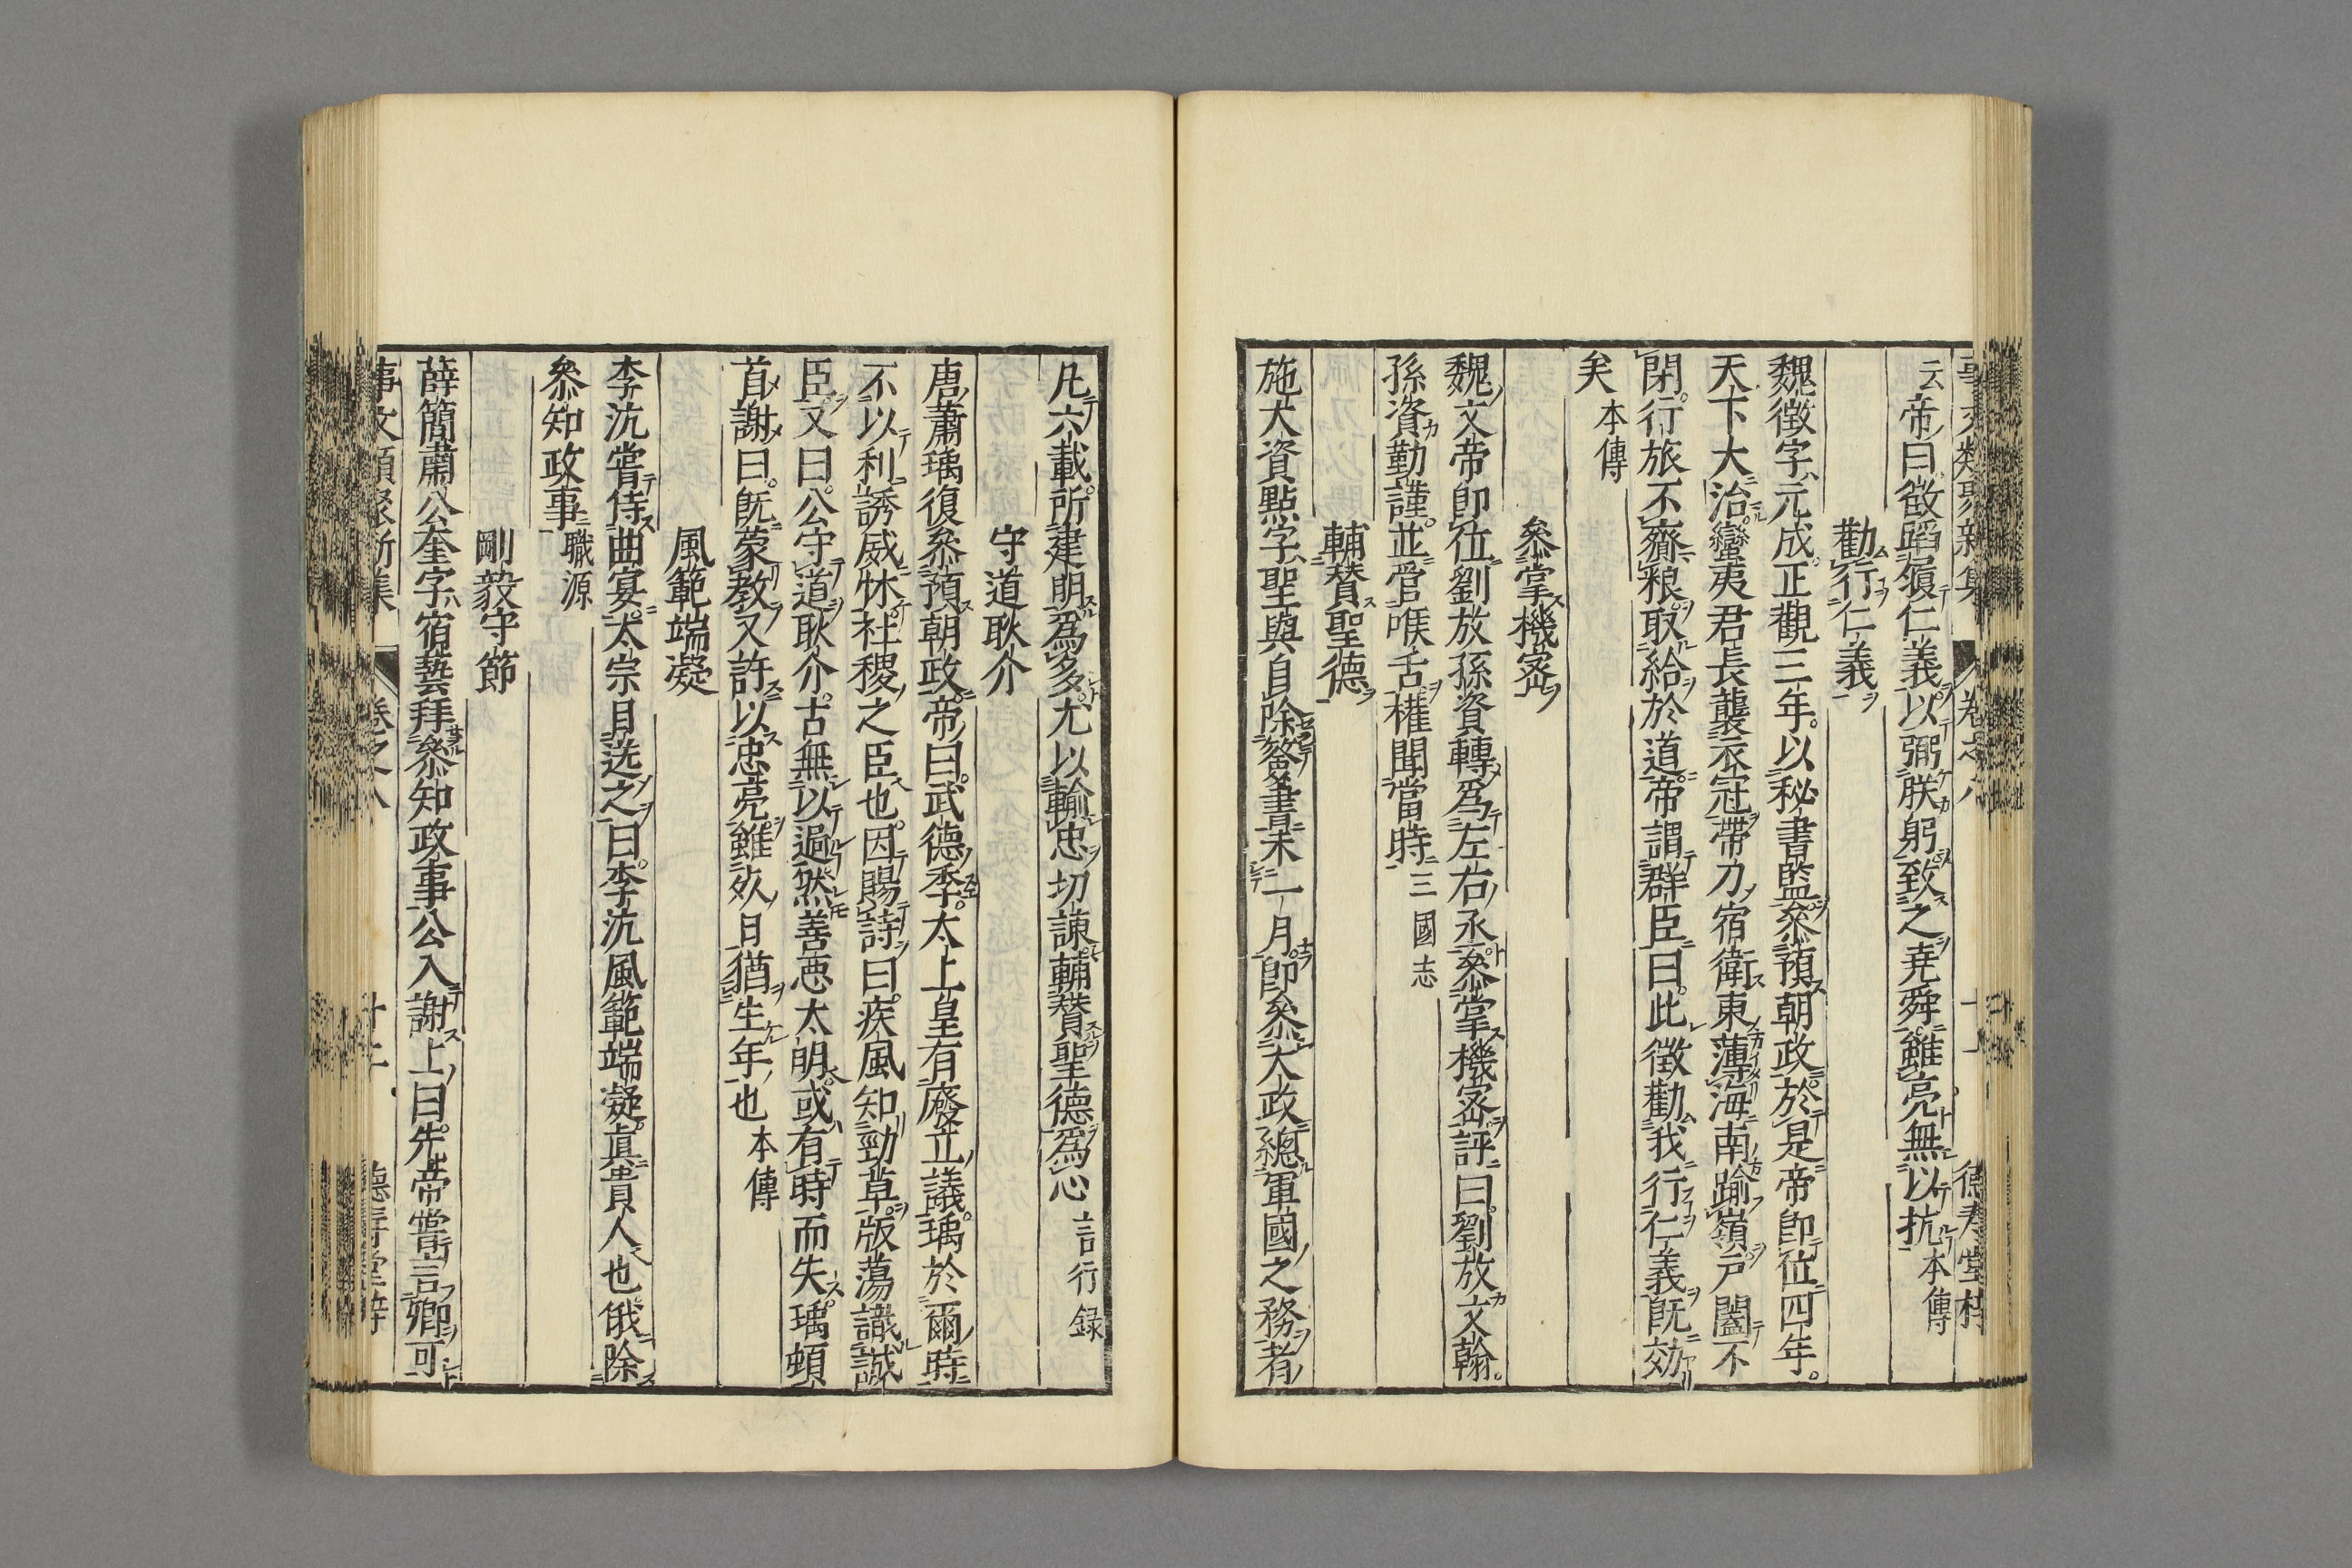 云帝曰徴蹈履仁義以弼朕躬致之堯舜雖亮無以抗 本傳
勸行仁義
魏徴字元成正觀三年以秘書監叅預朝政於是帝即位四年
天下大治蠻夷君長襲衣冠帶刀宿衛東薄海南踰嶺戸闔不
閉行旅不齎粮取給於道帝謂群臣曰此徴勸我行仁義既効
矣 本傳
叅掌機宻
魏文帝即位劉放孫資轉爲左右丞叅掌機宻評曰劉放文翰
孫資勤謹並管喉舌權聞當時 三國志
輔賛聖德
施大資點字聖與自除簽書未一月即叅大政總軍國之務者
凡六載所建明爲多尤以輸忠切諌輔賛聖德爲心 言行録
守道耿介
唐蕭瑀復叅預朝政帝曰武德季太上皇有廢立議瑀於爾時
不以利誘威怵社稷之臣也因賜詩曰疾風知勁草版蕩識誠
臣又曰公守道耿介古無以過然善惡太明或有時而失瑀頓
首謝曰既蒙教又許以忠亮雖死日猶生年也 本傳
風範端凝
李沆嘗侍曲宴太宗目送之曰李沆風範端凝真貴人也俄除
叅知政事 職源
剛毅守節
薛簡肅公奎字宿藝拜叅知政事公入謝上曰先帝嘗言卿可
事文類聚新集 卷之八